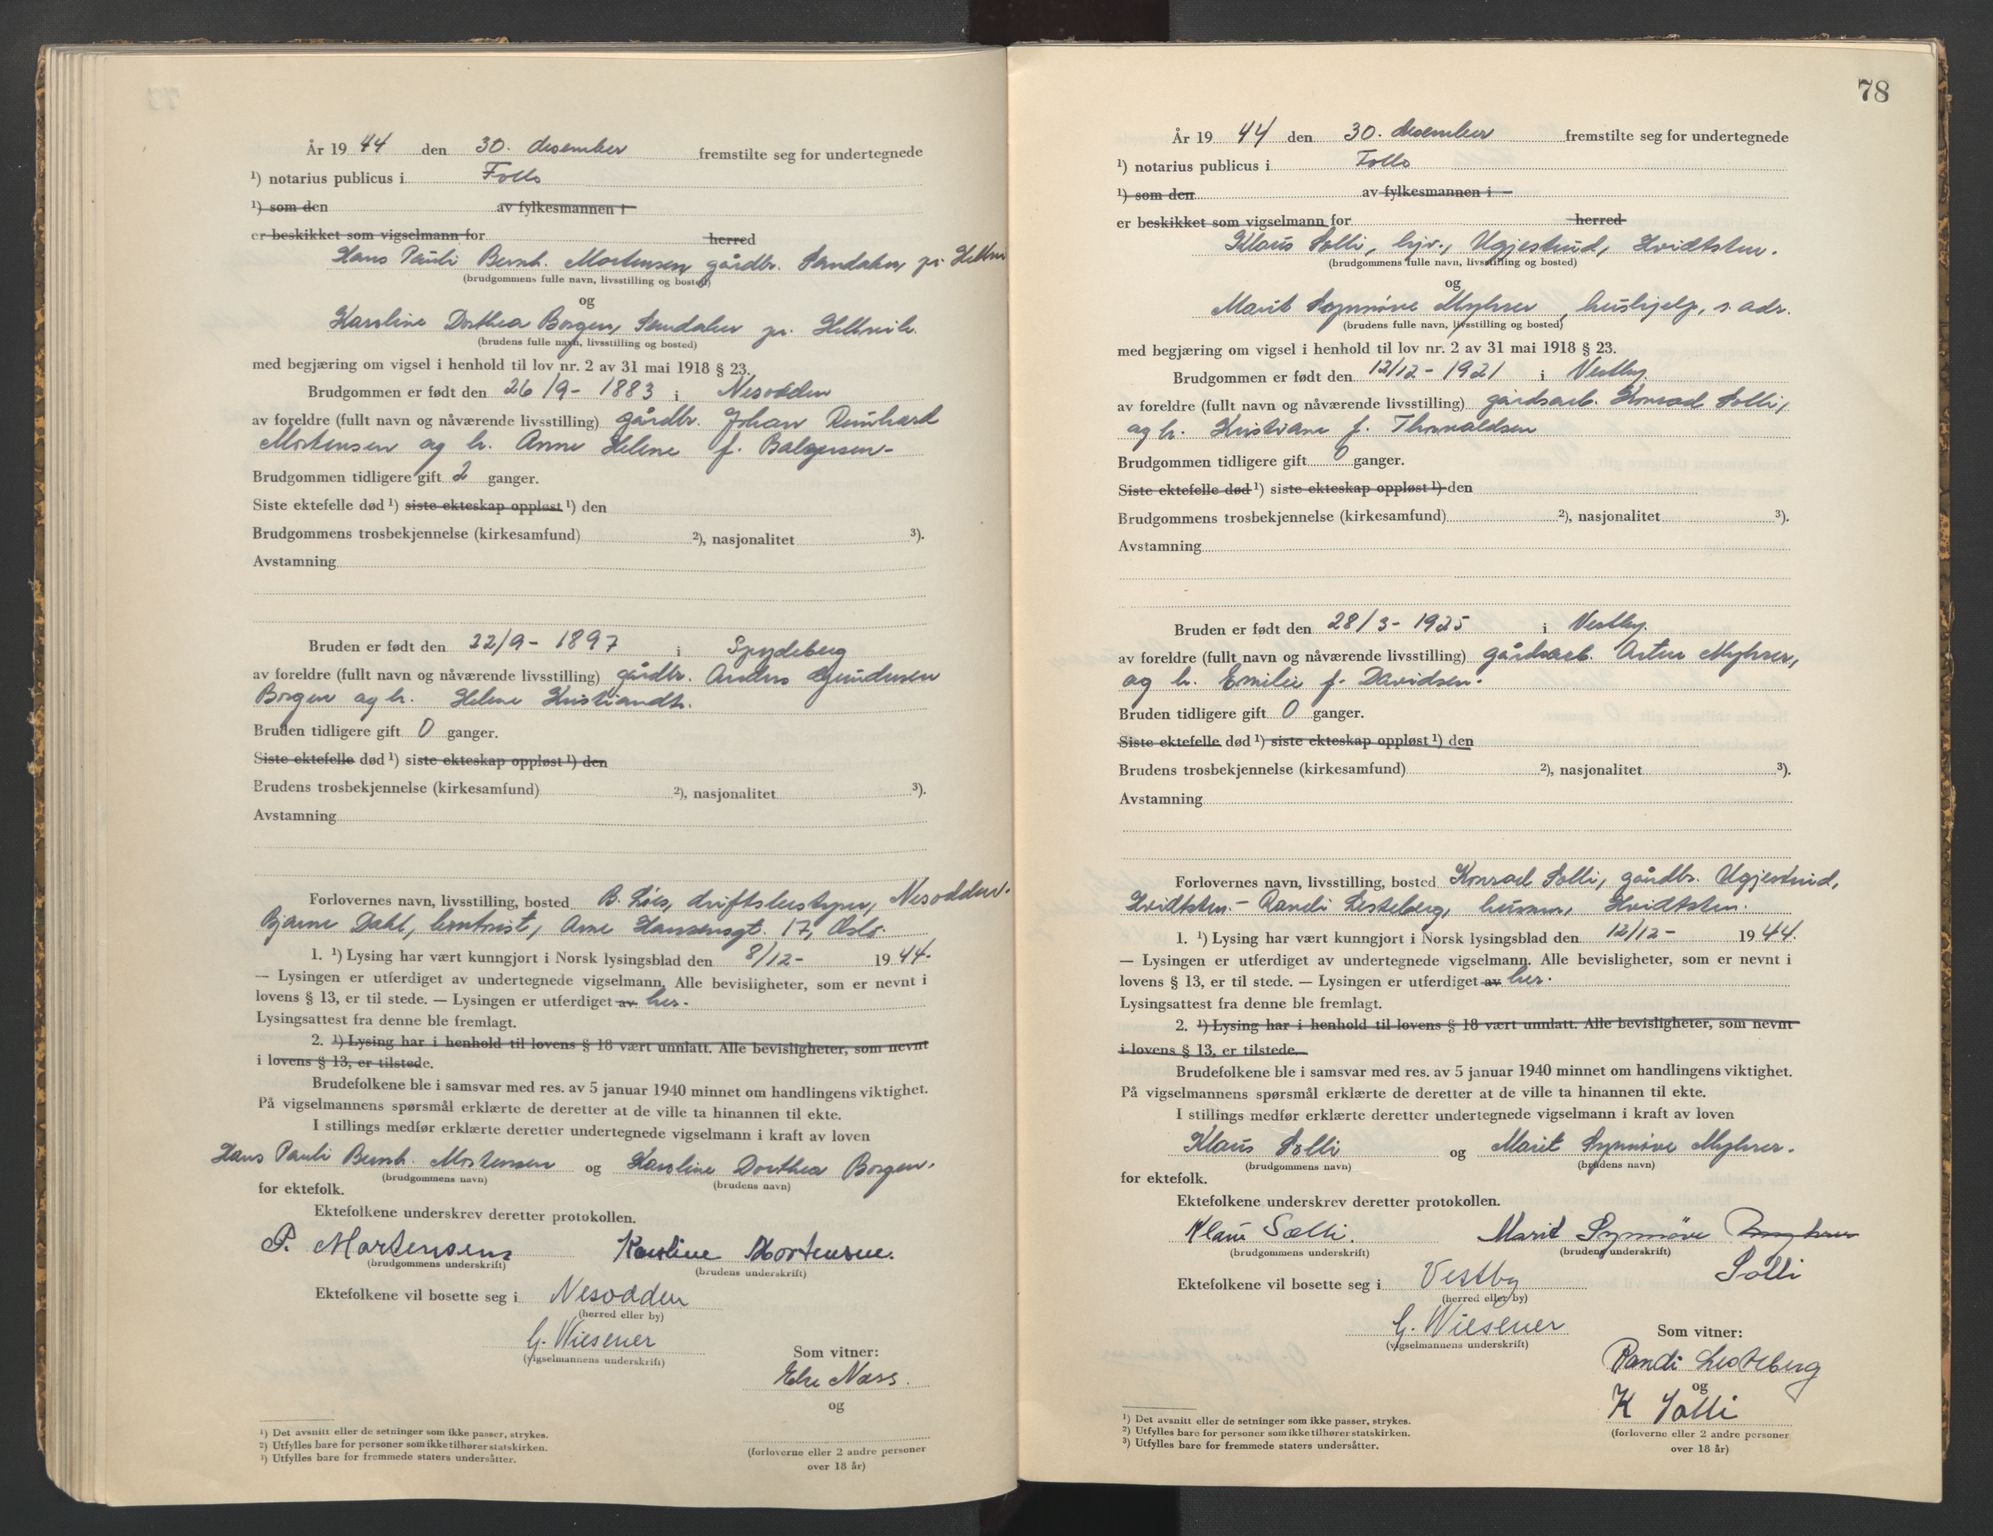 År 19 44 den 30. desember fremstilte seg for undertegnede
¹) notarius publicus i Follo
¹) som den av fylkesmannen i
er beskikket som vigselmann for herred
Hans Pauli Bernh. Mortensen, gårdbr. Sandaker pr. Hellvi
(brudgommens fulle navn, livsstilling og bosted)
og
Karoline Dorthea Borgen, Sandaker pr. Hellvik.
(brudens fulle navn, livsstilling og bosted)
med begjæring om vigsel i henhold til lov nr. 2 av 31 mai 1918 § 23.
Brudgommen er født den 26/9- 1883 i Nesodden
av foreldre (fullt navn og nåværende livsstilling) gårdbr. Johan Reinhard
Mortensen og h. Anne Helene f.
Brudgommen tidligere gift 2 ganger.
Siste ektefelle død ¹) siste ekteskap oppløst ¹) den
Brudgommens trosbekjennelse (kirkesamfund) ²), nasjonalitet ³).
Avstamning
Bruden er født den 22/9- 1897 i Spydeberg
av foreldre (fullt navn og nåværende livsstilling) gårdbr. Anders Gundersen
Borgen og h. Helene Kristiandtr.
Bruden tidligere gift 0 ganger.
Siste ektefelle død ¹) siste ekteskap oppløst ¹) den
Brudens trosbekjennelse (kirkesamfund) ²), nasjonalitet ³).
Avstamning
Forlovernes navn, livsstilling, bosted B. driftsbestyrer, Nesodden.
Bjarne Dahl, kontorist, Arne Hansensgt. 17, Oslo.
1. ¹) Lysing har vært kunngjort i Norsk lysingsblad den 8/12- 19 44-
— Lysingen er utferdiget av undertegnede vigselmann. Alle bevisligheter, som er nevnt i
lovens § 13, er til stede. — Lysingen er utferdiget av her.
Lysingsattest fra denne ble fremlagt.
2. ¹) Lysing har i henhold til lovens § 18 vært unnlatt. Alle bevisligheter, som nevnt
i lovens § 13, er tilstede.
Brudefolkene ble i samsvar med res. av 5 januar 1940 minnet om handlingens viktighet.
På vigselmannens spørsmål erklærte de deretter at de ville ta hinannen til ekte.
I stillings medfør erklærte deretter undertegnede vigselmann i kraft av loven
Hans Pauli Bernh. Mortensen og Karoline Dorthea Borgen.
(brudgommens navn) (brudens navn)
for ektefolk.
Ektefolkene underskrev deretter protokollen.
P. Mortensen Karoline Mortensen.
(brudgommens underskrift) (brudens underskrift)
Ektefolkene vil bosette seg i Nesodden
(herred eller by)
G. Wiesener
(vigselmannens underskrift)
Som vitner:
Else Næss.
og
(forloverne eller 2 andre personer
over 18 år)
¹) Det avsnitt eller de setninger som ikke passer, strykes.
²) Utfylles bare for personer som ikke tilhører statskirken.
³) Utfylles bare for fremmede staters undersåtter.
78
År 19 44 den 30. desember fremstilte seg for undertegnede
¹) notarius publicus i Follo
¹) som den av fylkesmannen i
er beskikket som vigselmann for herred
Klaus Solli, sjv., Ugjestrud, Hvidtsten.
(brudgommens fulle navn, livsstilling og bosted)
og
Marit Synnøve Myhrer, hushjelp, s. adr.
(brudens fulle navn, livsstilling og bosted)
med begjæring om vigsel i henhold til lov nr. 2 av 31 mai 1918 § 23.
Brudgommen er født den 12/12- 1921 i Vestby.
av foreldre (fullt navn og nåværende livsstilling) gårdsarb. Konrad Solli,
og h. Kristiane f. Thorvaldsen
Brudgommen tidligere gift 0 ganger.
Siste ektefelle død ¹) siste ekteskap oppløst ¹) den
Brudgommens trosbekjennelse (kirkesamfund) ²), nasjonalitet ³).
Avstamning
Bruden er født den 28/3- 1925 i Vestby.
av foreldre (fullt navn og nåværende livsstilling) gårdsarb. Artur Myhrer,
og h. Emilie f. Davidsen.
Bruden tidligere gift 0 ganger.
Siste ektefelle død ¹) siste ekteskap oppløst ¹) den
Brudens trosbekjennelse (kirkesamfund) ²), nasjonalitet ³).
Avstamning
Forlovernes navn, livsstilling, bosted Konrad Solli, gårdbr. Ugjestrud,
Hvidtsten.- Randi Lesteberg, husm., Hvidtsten.
1. ¹) Lysing har vært kunngjort i Norsk lysingsblad den 12/12- 19 44.
— Lysingen er utferdiget av undertegnede vigselmann. Alle bevisligheter, som er nevnt i
lovens § 13, er til stede. — Lysingen er utferdiget av her.
Lysingsattest fra denne ble fremlagt.
2. ¹) Lysing har i henhold til lovens § 18 vært unnlatt. Alle bevisligheter, som nevnt
i lovens § 13, er tilstede.
Brudefolkene ble i samsvar med res. av 5 januar 1940 minnet om handlingens viktighet.
På vigselmannens spørsmål erklærte de deretter at de ville ta hinannen til ekte.
I stillings medfør erklærte deretter undertegnede vigselmann i kraft av loven
Klaus Solli og Marit Synnøve Myhrer.
(brudgommens navn) (brudens navn)
for ektefolk.
Ektefolkene underskrev deretter protokollen.
Klaus Solli. Marit Synnøve Myhrer
(brudgommens underskrift) (brudens underskrift)
Solli
Ektefolkene vil bosette seg i Vestby
(herred eller by)
G. Wiesener
(vigselmannens underskrift)
Som vitner:
Randi Lesteberg
og
K Solli
(forloverne eller 2 andre personer
over 18 år)
¹) Det avsnitt eller de setninger som ikke passer, strykes.
²) Utfylles bare for personer som ikke tilhører statskirken.
³) Utfylles bare for fremmede staters undersåtter.